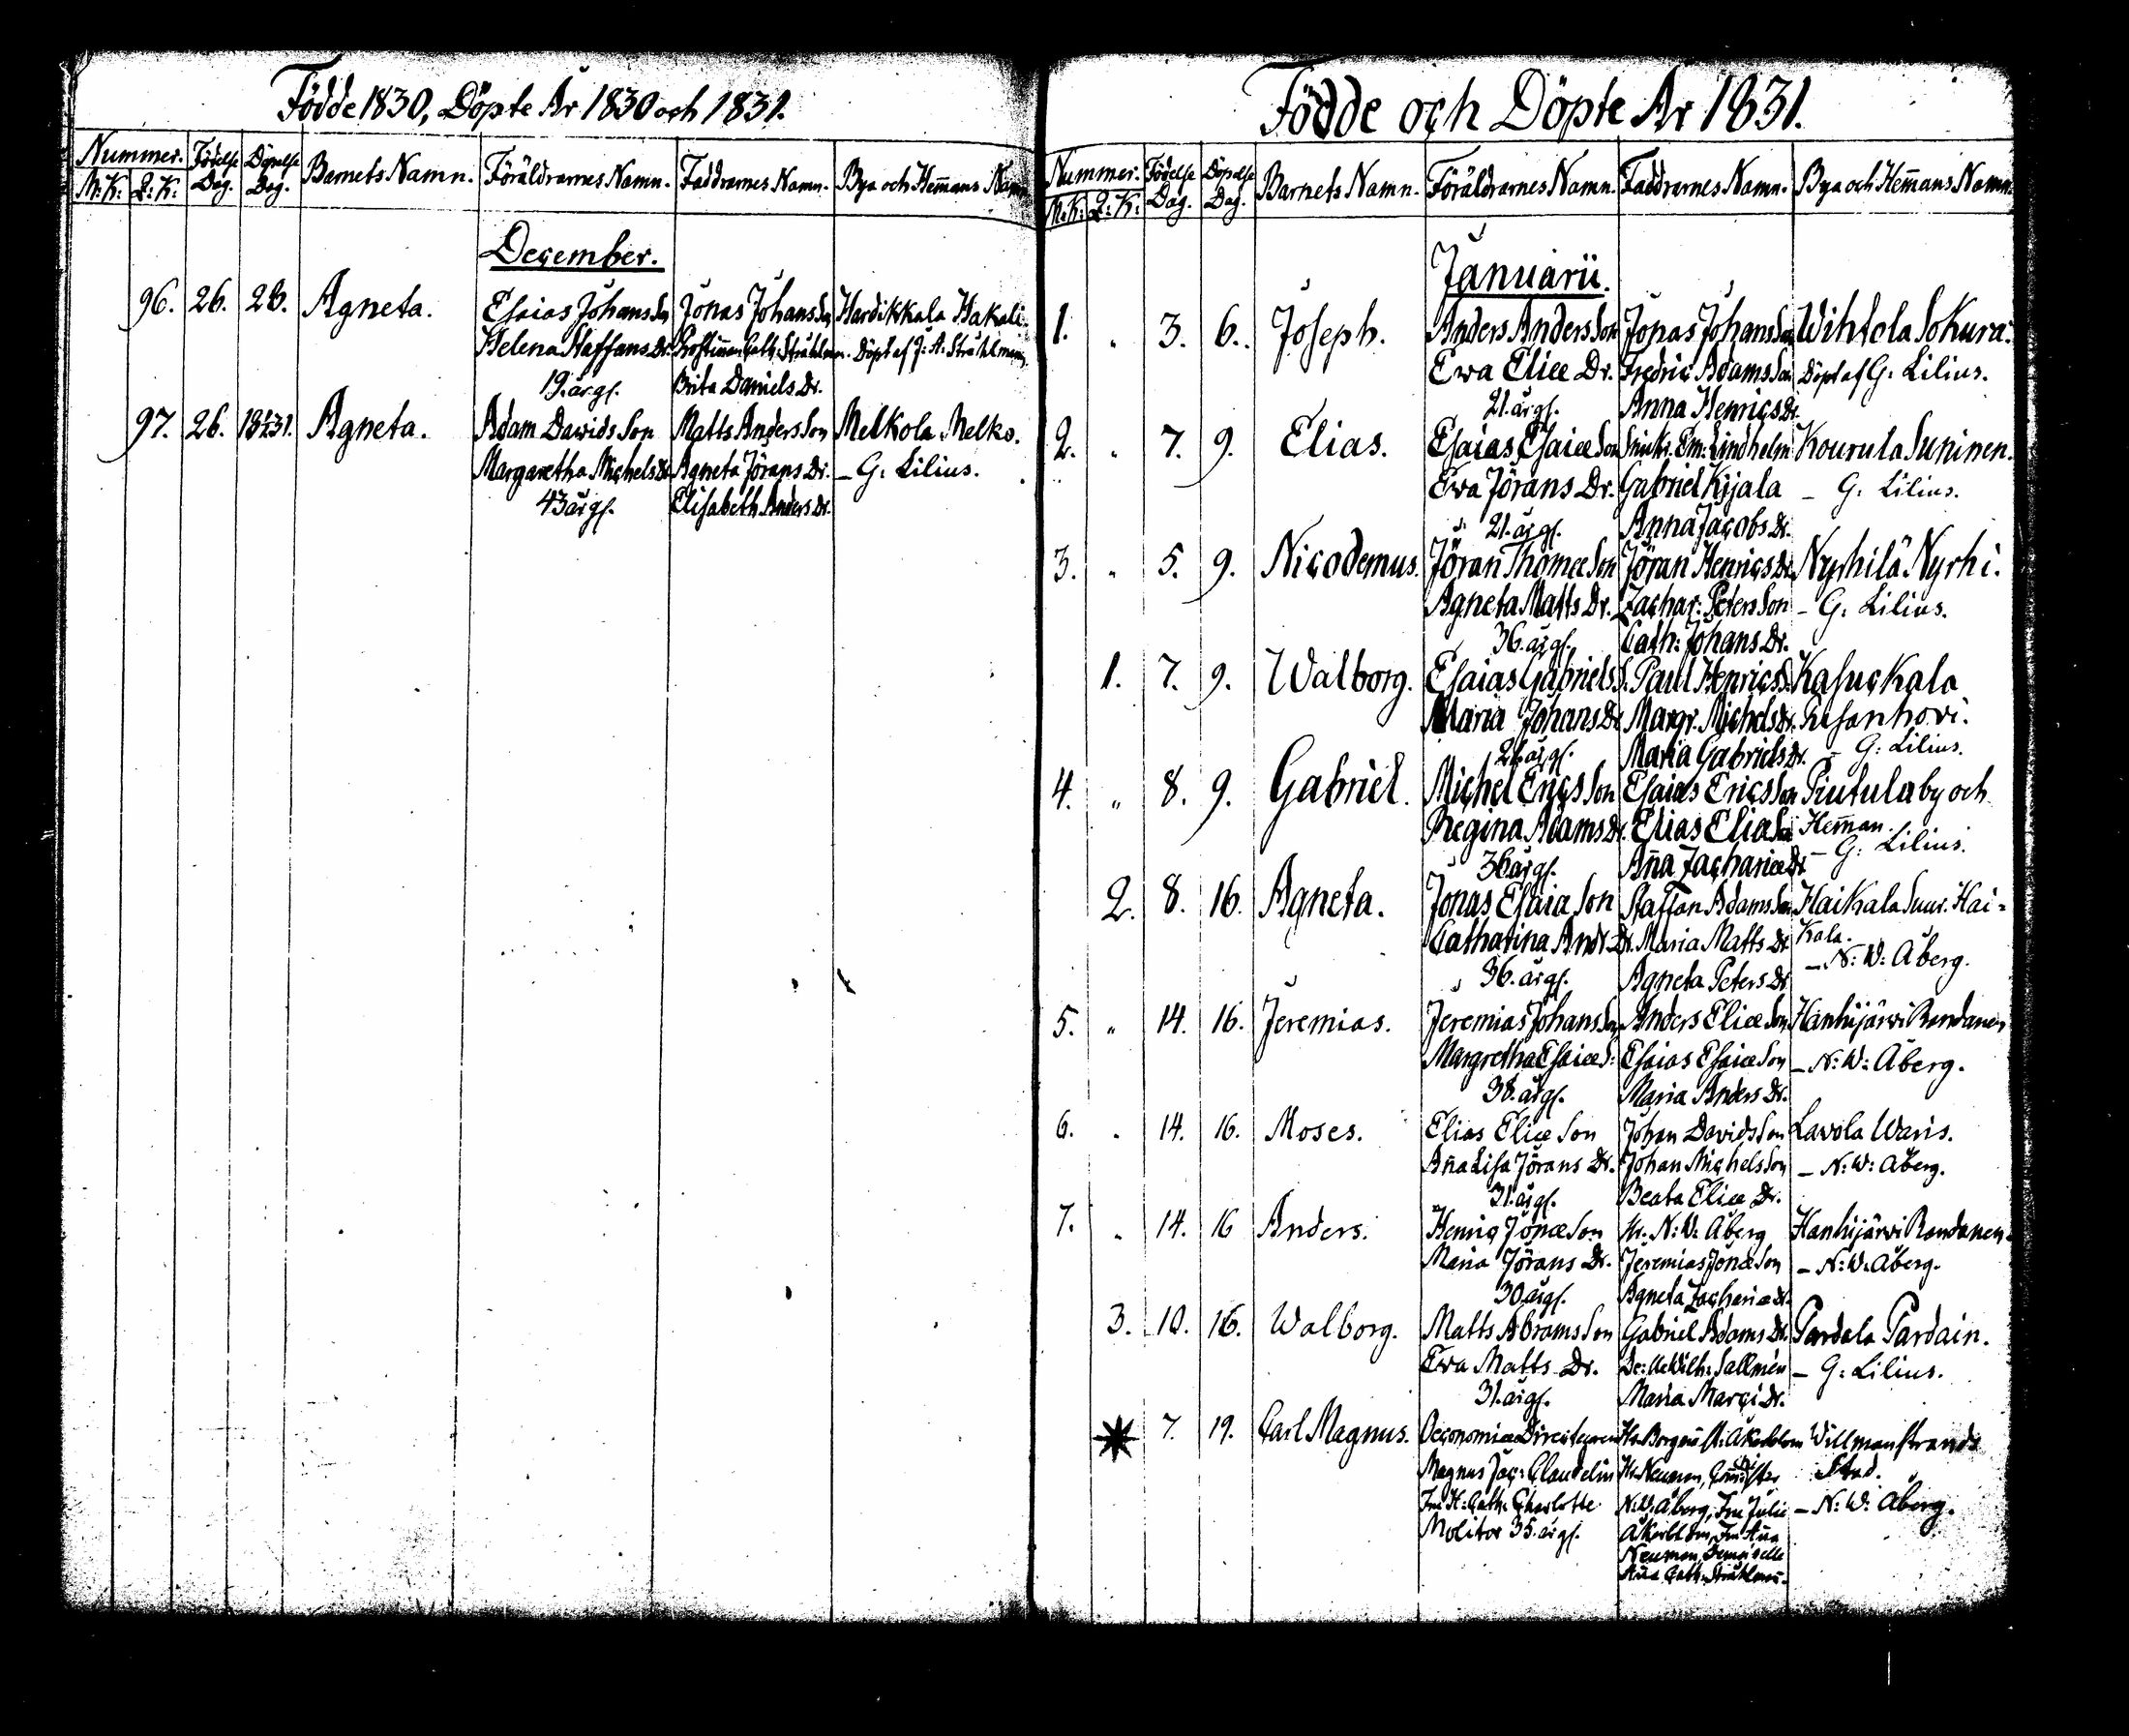 Födde 1830, Döpte År 1830 och 1831.
Nummer. Födelse Dag. Döpelse Dag. Barnets Namn. Föräldrarnes Namn. Faddrarnes Namn. Bya och Hem̄ans Namn
M: K: Q: K:
December.
96. 26. 28. Agneta. Esaias Johans Son Jonas Johans Son Hardikkala Hakali.
Helena Staffans Dr. Cath: Stråhlman. Döpt af J: A: Stråhlman,
19. år gl. Brita Daniels Dr.
97. 26. Agneta. Adam Davids Son Matts Anders Son Melkola Melko.
Margaretha Michels Dr. Agneta Jörans Dr. – G: Lilius.
43 år gl. Elisabeth Anders Dr.
Födde och Döpte År 1831.
Nummer. Födelse Dag. Döpelse Dag. Barnets Namn. Föräldrarnes Namn. Faddrarnes Namn. Bya och Hem̄ans Namn
M: K: Q: K:
Januarii.
1. " 3. 6. Joseph. Anders Anders Son Jonas Johans Son Wihtola Sokura.
Ewa Eliæ Dr. Fredric Adams Son Döpt af G: Lilius.
21. år gl. Anna Henrics Dr.
2. " 7. 9. Elias. Esaias Esaiæ Son Em: Lindholm Kourula Suninen.
Ewa Jörans Dr. Gabriel Kijala – G: Lilius.
21. år gl. Anna Jacobs Dr.
3. " 5. 9. Nicodemus. Jöran Thomæ Son Jöran Henrics Dr. Nyrhilä Nyrhi.
Agneta Matts Dr. Zachar: Peters Son – G: Lilius.
36. år gl. Cath: Johans Dr.
1. 7. 9. Walborg. Esaias Gabriels S. Paul Henrics S. Kasuckala
Maria Johans Dr. Margr. Michels Dr.
år gl. Maria Gabriels Dr. – G: Lilius.
4. " 8. 9. Gabriel. Michel Erics Son Esaias Erics Son Piutula by och
Regina Adams Dr. Elias Eliæ Son Hem̄an.
36 år gl. An̄a Zachariæ Dr. – G: Lilius.
2. 8. 16. Agneta. Jonas Esaiæ Son Staffan Adams Son Haikala Suur. Hai=
Catharina Andr. Dr. Maria Matts Dr. kala.
36. år gl. Agneta Peters Dr. – N: W: Åberg.
5. " 14. 16. Jeremias. Jeremias Johans Son Anders Eliæ Son Hanhijärvi Rondanen
Margretha Esaiæ D: Esaias Esaiæ Son – N: W: Åberg.
38. år gl. Maria Anders Dr.
6. " 14. 16. Moses. Elias Eliæ Son Johan Davids Son Lavola Waris.
An̄a Lisa Jörans Dr. Johan Michels Son – N: W: Åberg.
31. år gl. Beata Eliæ Dr.
7. " 14. 16 Anders. Henric Jonæ Son Hr. N: W: Åberg Hanhijärvi Rondanen.
Maria Jörans Dr. Jeremias Jonæ Son – N: W: Åberg.
30 år gl. Agneta Zachariæ Dr.
3. 10. 16. Walborg. Matts Abrams Son Gabriel Adams Dr. Pardala Pardain.
Ewa Matts Dr. Wilh: Sallmén – G: Lilius.
31. år gl. Maria Marci Dr.
7. 19. Carl Magnus. Oeconomiæ Directeuren Åkerblom Willmanstrands
Magnus Jac: Claudelin Hr. Neuman, Stad.
Fru H: Cath. Charlotte N: W: Åberg, Fru Julie – N: W: Åberg.
Molitor 35. år gl. Åkerblom, Fru An̄a
Neuman, Demoiselle
An̄a Cath. Stråhlman.